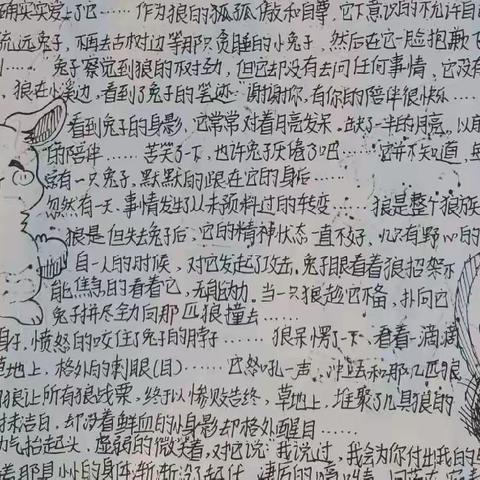 确实实爱上了它…… 作为狼的孤孤傲和自尊,它下意识的不允许自己
疏远兔子,不再去古树边等那只贪睡的小兔子,然后在它一脸抱歉
…… 兔子察觉到狼的不对劲,但它却没有去问任何事情,它没有
,狼在小溪边,看到了兔子的笔迹:谢谢你,有你的陪伴很快乐……
看到兔子的身影,它常常对着月亮发呆,缺了一半的月亮,以前
的陪伴…… 苦笑了下,也许兔子厌倦了吧…… 它并不知道,每
有一只兔子,默默的跟在它的身后……
忽然有一天,事情发生了从未预料过的转变…… 狼是整个狼族
狼是但失去兔子后,它的精神状态一直不好,有野心的
自一人的时候,对它发起了攻击,兔子眼看着狼招架不
能焦急的看着它,无能为力。当一只狼趁它不备,扑向它
兔子拼尽全力向那匹狼撞去……
身子,愤怒的咬住了兔子的脖子…… 狼呆愣了下,看着一滴滴
草地上,格外的刺眼(目)…… 它怒吼一声,冲上去和那几匹狼
狼让所有狼战栗,终于以惨败告终,草地上,堆聚了几具狼的
洁白,却沾着鲜血的小身影却格外醒目……
力气抬起头,虚弱的微笑着,对它说:我说过,我会为你付出我的
着那具小小的身体渐渐没了起伏